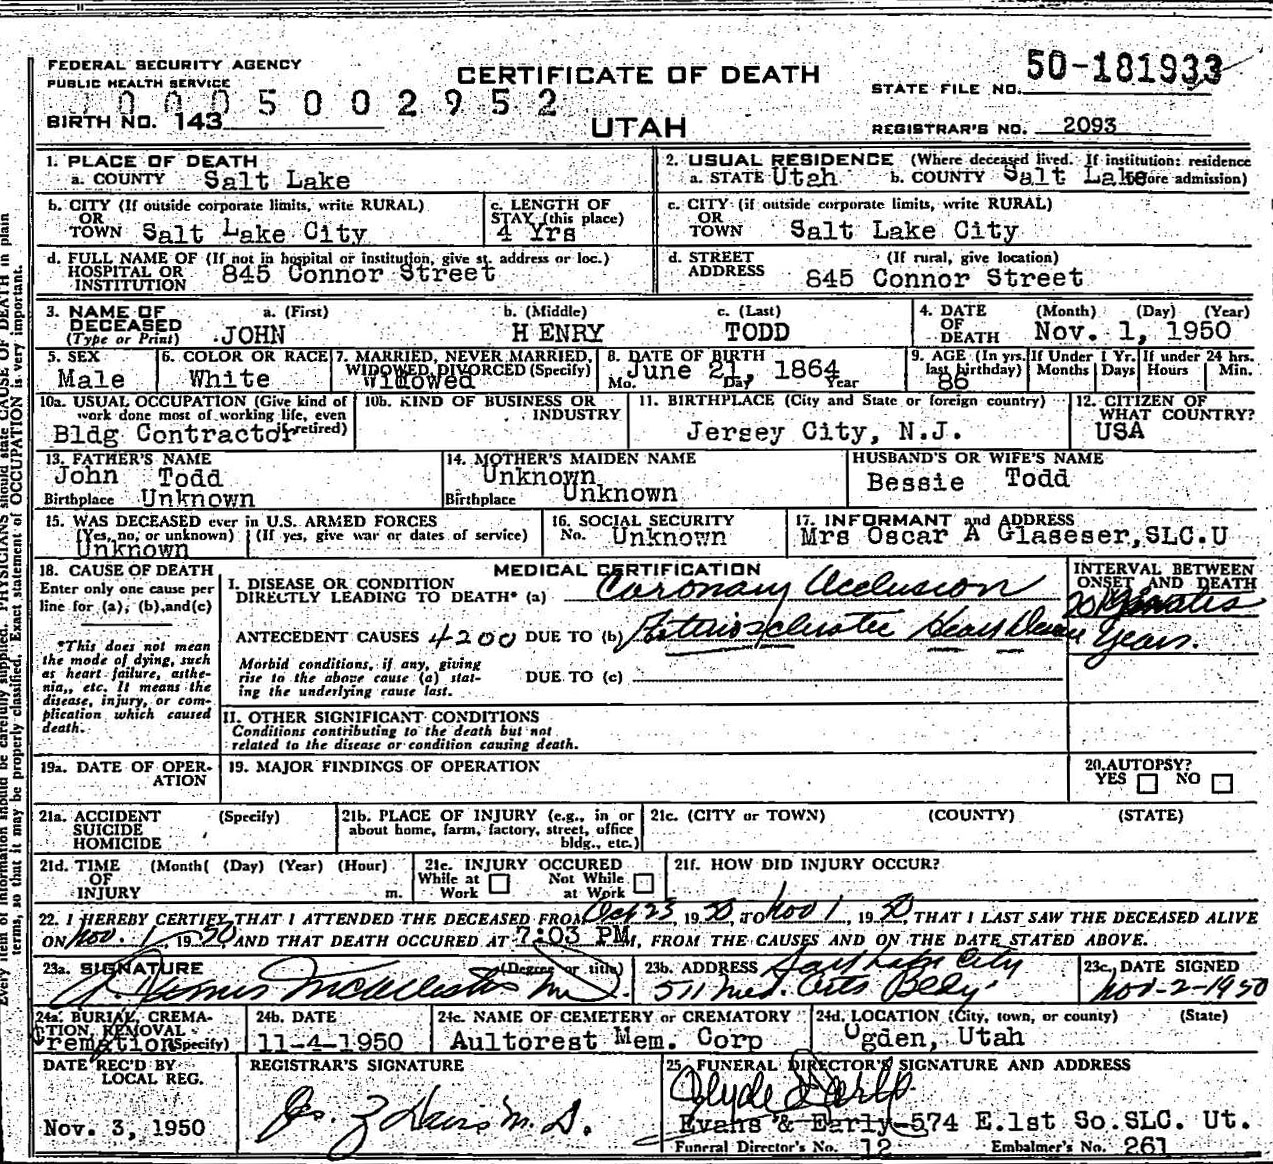 FEDERAL SECURITY AGENCY
PUBLIC HEALTH SERVICE
CERTIFICATE OF DEATH
50-181933
STATE FILE NO.
5 0 0 2 9 5 2
BIRTH NO. 143
UTAH
REGISTRAR'S NO. 2093
1. PLACE OF DEATH
a. COUNTY Salt Lake
2. USUAL RESIDENCE (Where deceased lived. If institution: residence before admission)
a. STATE Utah b. COUNTY Salt Lake
b. CITY (If outside corporate limits, write RURAL)
OR
TOWN Salt Lake City
c. LENGTH OF
STAY (this place)
4 Yrs
c. CITY (if outside corporate limits, write RURAL)
OR
TOWN Salt Lake City
d. FULL NAME OF (If not in hospital or institution, give st. address or loc.)
HOSPITAL OR
INSTITUTION 845 Connor Street
d. STREET (If rural, give location)
ADDRESS 845 Connor Street
3. NAME OF
DECEASED
(Type or Print)
a. (First) b. (Middle) c. (Last)
JOHN HENRY TODD
4. DATE
OF
DEATH
(Month) (Day) (Year)
Nov. 1, 1950
5. SEX
Male
6. COLOR OR RACE
White
7. MARRIED, NEVER MARRIED,
WIDOWED, DIVORCED (Specify)
Widowed
8. DATE OF BIRTH
June 21, 1864
Mo. Day Year
9. AGE (In yrs. last birthday)
86
If Under 1 Yr.
Months Days
If under 24 hrs.
Hours Min.
10a. USUAL OCCUPATION (Give kind of
work done most of working life, even
if retired)
Bldg Contractor
10b. KIND OF BUSINESS OR
INDUSTRY
11. BIRTHPLACE (City and State or foreign country)
Jersey City, N.J.
12. CITIZEN OF
WHAT COUNTRY?
USA
13. FATHER'S NAME
John Todd
Birthplace Unknown
14. MOTHER'S MAIDEN NAME
Unknown
Birthplace Unknown
HUSBAND'S OR WIFE'S NAME
Bessie Todd
15. WAS DECEASED ever in U.S. ARMED FORCES
(Yes, no, or unknown) (If yes, give war or dates of service)
Unknown
16. SOCIAL SECURITY
No. Unknown
17. INFORMANT and ADDRESS
Mrs Oscar A Glaseser,SLC.U
18. CAUSE OF DEATH
Enter only one cause per
line for (a), (b),and(c)
*This does not mean
the mode of dying, such
as heart failure, asthe-
nia,, etc. It means the
disease, injury, or com-
plication which caused
death.
MEDICAL CERTIFICATION
I. DISEASE OR CONDITION
DIRECTLY LEADING TO DEATH* (a) Coronary Occlusion
ANTECEDENT CAUSES 4200 DUE TO (b) Arteriosclerotic Heart Disease
Morbid conditions, if any, giving
rise to the above cause (a) stat-
ing the underlying cause last.
DUE TO (c)
INTERVAL BETWEEN
ONSET AND DEATH
Years.
II. OTHER SIGNIFICANT CONDITIONS
Conditions contributing to the death but not
related to the disease or condition causing death.
19a. DATE OF OPER-
ATION
19. MAJOR FINDINGS OF OPERATION
20. AUTOPSY?
YES NO
21a. ACCIDENT (Specify)
SUICIDE
HOMICIDE
21b. PLACE OF INJURY (e.g., in or
about home, farm, factory, street, office
bldg., etc.)
21c. (CITY or TOWN) (COUNTY) (STATE)
21d. TIME (Month( (Day) (Year) (Hour)
OF
INJURY m.
21e. INJURY OCCURED
While at Work Not While at Work
21f. HOW DID INJURY OCCUR?
22. I HEREBY CERTIFY THAT I ATTENDED THE DECEASED FROM Oct 23, 1950, TO Nov 1, 1950, THAT I LAST SAW THE DECEASED ALIVE
ON Nov. 1, 1950 AND THAT DEATH OCCURED AT 7:03 PM, FROM THE CAUSES AND ON THE DATE STATED ABOVE.
23a. SIGNATURE (Degree or title)
McAllister M.D.
23b. ADDRESS Salt Lake City
511 Med. Arts Bldg.
23c. DATE SIGNED
Nov-2-1950
24a. BURIAL, CREMA-
TION, REMOVAL
(Specify)
Cremation
24b. DATE
11-4-1950
24c. NAME OF CEMETERY or CREMATORY
Aultorest Mem. Corp
24d. LOCATION (City, town, or county) (State)
Ogden, Utah
DATE REC'D BY
LOCAL REG.
Nov. 3, 1950
REGISTRAR'S SIGNATURE
25. FUNERAL DIRECTOR'S SIGNATURE AND ADDRESS
Clyde
Evans & Early-574 E.1st So.SLC. Ut.
Funeral Director's No. 12 Embalmer's No. 261
Every item of information should be carefully supplied. PHYSICIANS should state CAUSE OF DEATH in plain
terms, so that it may be properly classified. Exact statement of OCCUPATION is very important.